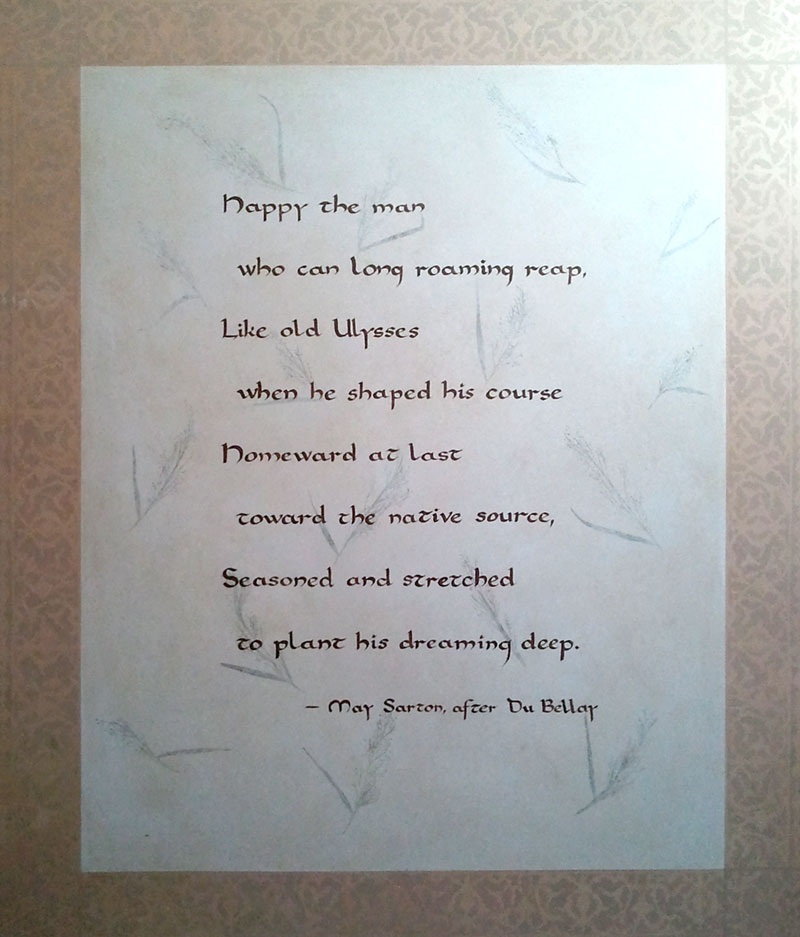 Happy the man
who can long roaming reap,
Like old Ulysses
when he shaped his course
Homeward at last
toward the native source,
Seasoned and stretched
to plant his dreaming deep.
– May Sarton, after Du Bellay